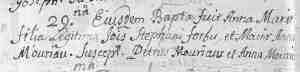 29ª Ejusdem Bapta fuit Anna Mari
filia Legitima Jois Stephani forbu et Mariæ Annæ
Mouriau. Suscept. Petrus Mouriaux et Anna Mouriau